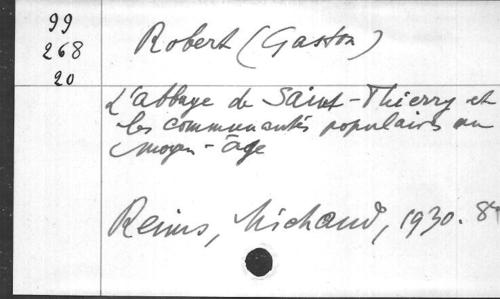 99
268
20
Robert (Gaston)
L'abbaye de Saint-Thierry et
les communautés populaires au
moyen-âge
Reims, Michaud, 1930. 8°